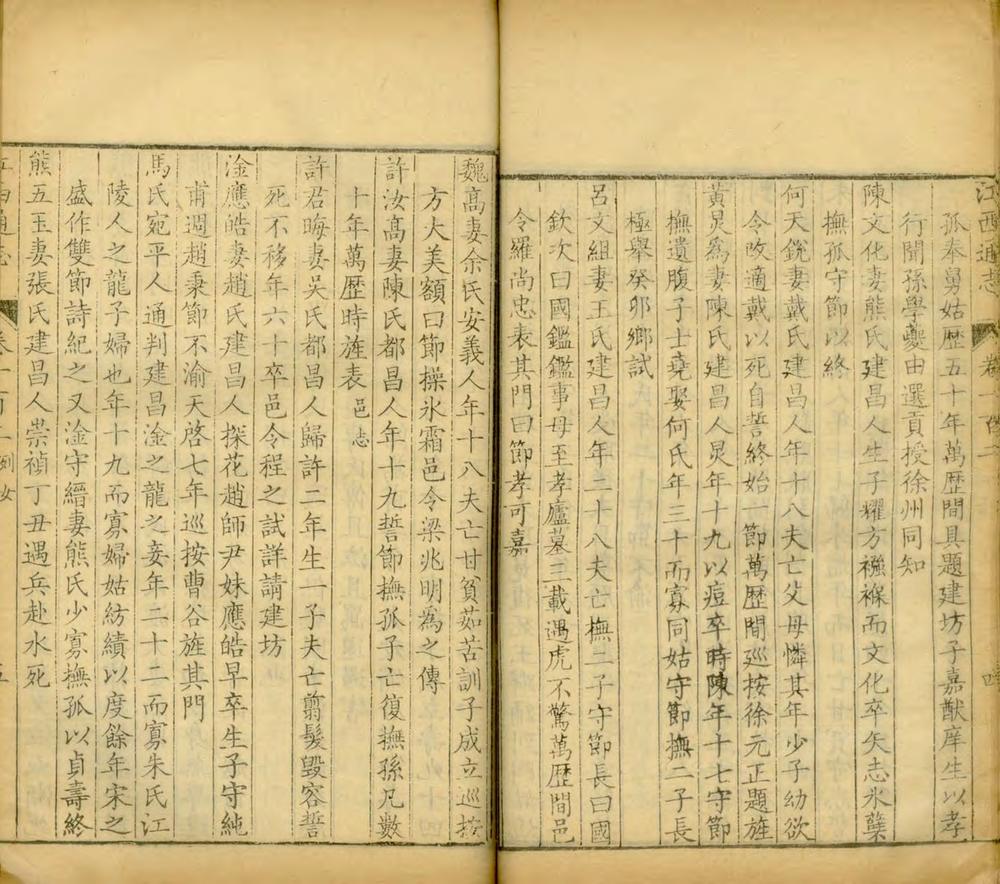 江西通志 卷一百
孤奉舅姑歷五十年萬歷間具題建坊子嘉猷庠生以孝
行聞孫學夔由選貢授徐州同知
陳文化妻熊氏建昌人生子耀方襁褓而文化卒矢志氷蘗
撫孤守節以終
何天銳妻戴氏建昌人年十八夫亡父母憐其年少子幼欲
令改適戴以死自誓終始一節萬歷間巡按徐元正題旌
黃炅爲妻陳氏建昌人炅年十九以痘卒時陳年十七守節
撫遺腹子士堯娶何氏年三十而寡同姑守節撫二子長
極舉癸卯鄉試
呂文組妻王氏建昌人年二十八夫亡撫二子守節長曰國
欽次曰國鑑鑑事母至孝廬墓三載遇虎不驚萬歷間邑
令羅尚忠表其門曰節孝可嘉
魏高妻余氏安義人年十八夫亡甘貧茹苦訓子成立巡按
方大美額曰節操氷霜邑令梁兆明爲之傳
許汝高妻陳氏都昌人年十九誓節撫孤子亡復撫孫凡數
十年萬歷時旌表 邑志
許君晦妻吳氏都昌人歸許二年生一子夫亡翦髮毀容誓
死不移年六十卒邑令程之試詳請建坊
淦應皓妻趙氏建昌人探花趙師尹妹應皓早卒生子守純
甫週趙秉節不渝天啓七年巡按曹谷旌其門
馬氏宛平人通判建昌淦之龍之妾年二十二而寡朱氏江
陵人之龍子婦也年十九而寡婦姑紡績以度餘年宋之
盛作雙節詩紀之又淦守縉妻熊氏少寡撫孤以貞壽終
熊五玉妻張氏建昌人崇禎丁丑遇兵赴水死
江西通志 卷一百 列女 五